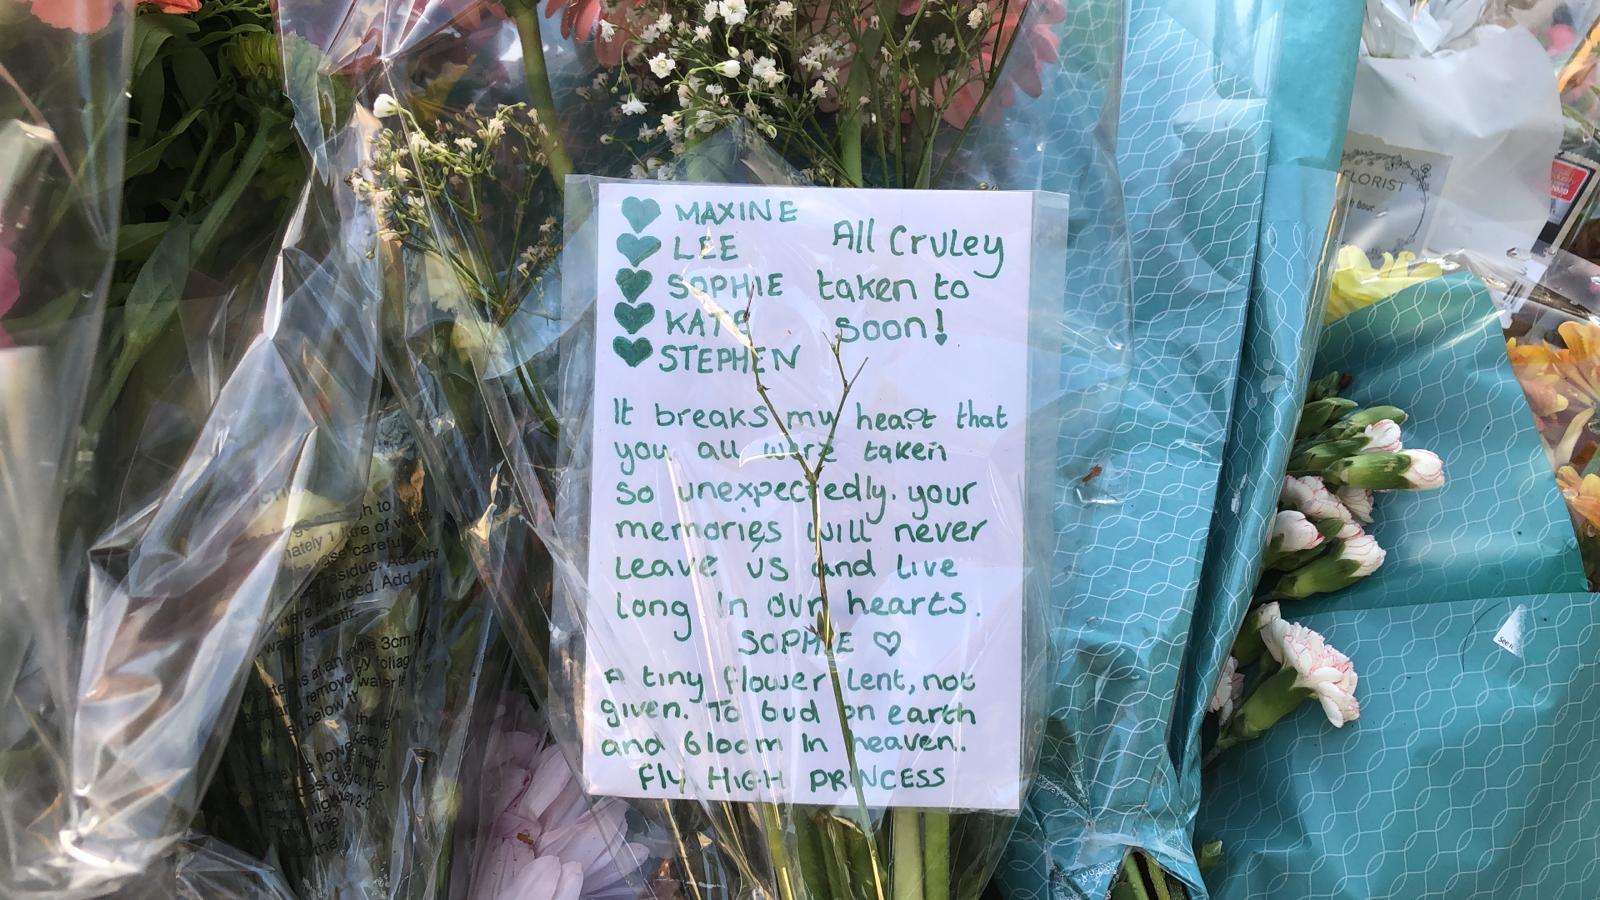 MAXINE
LEE
SOPHIE
KATE
STEPHEN
All Cruley
taken to
soon!
It breaks my heart that
you all were taken
so unexpectedly. your
memories will never
leave us and live
long in our hearts.
SOPHIE
A tiny flower lent, not
given. To bud on earth
and bloom in heaven.
Fly HIGH PRINCESS
FLORIST